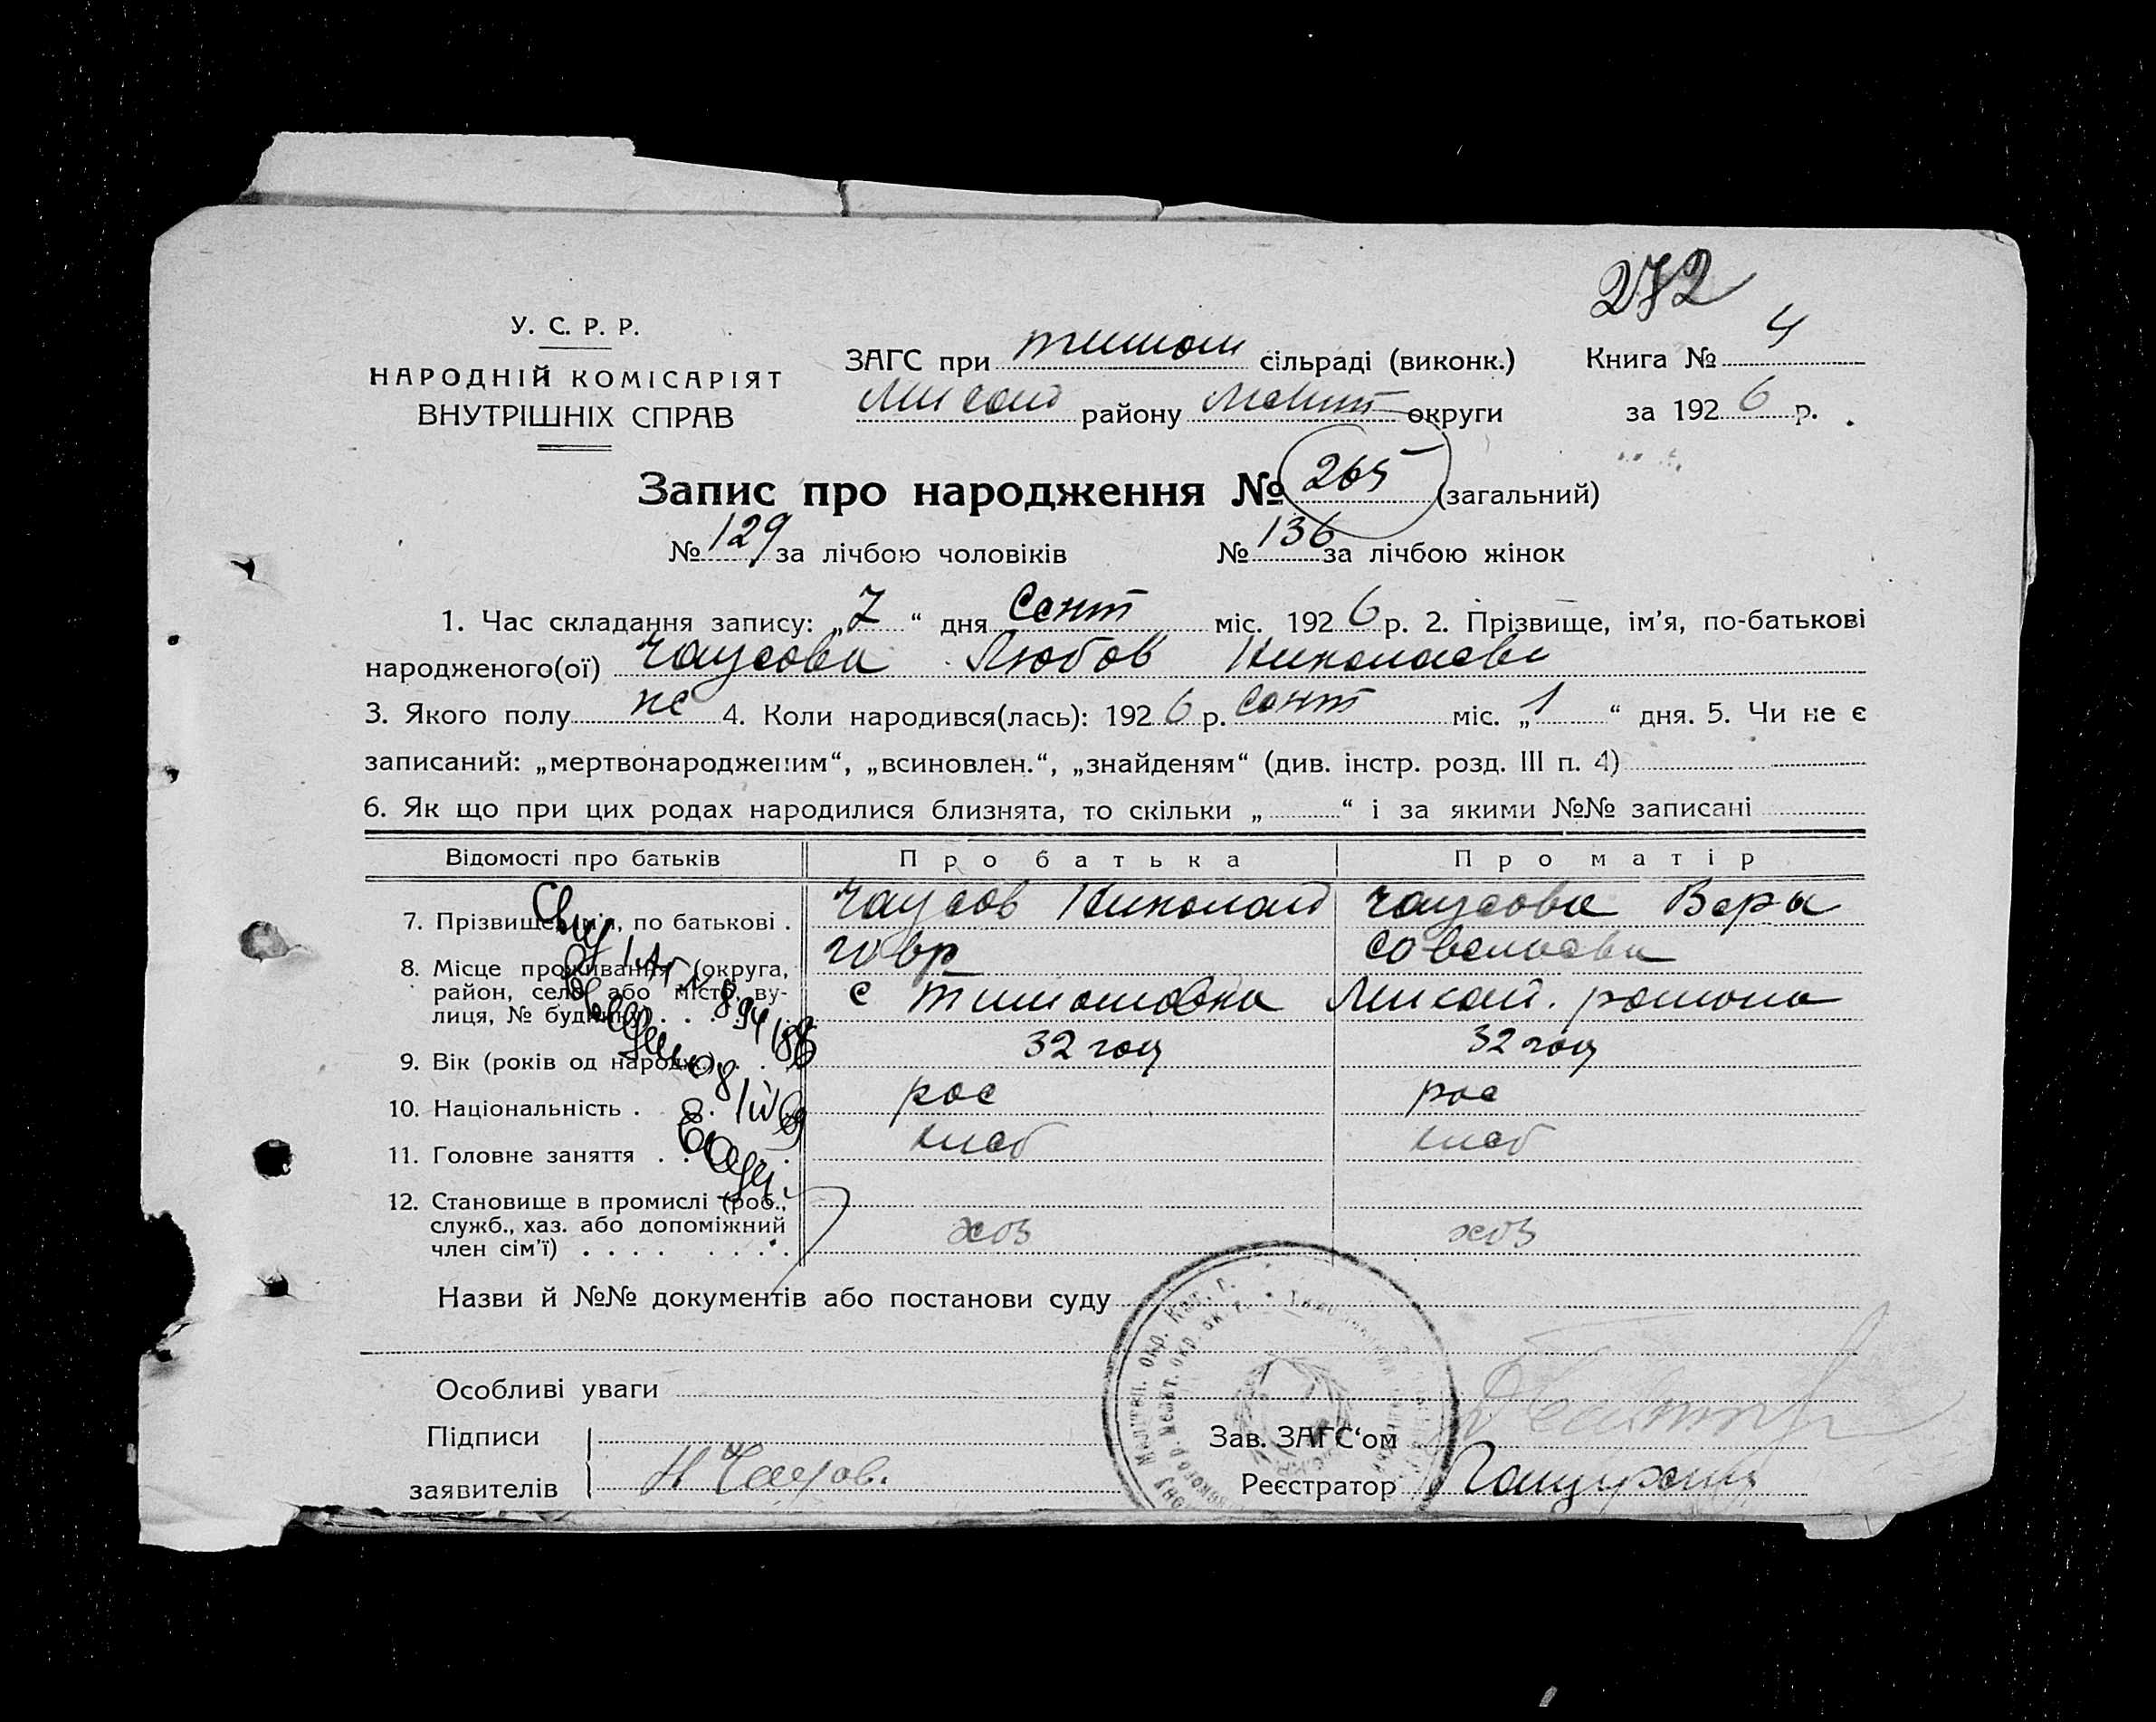 272
У. С. Р. Р.
НАРОДНІЙ КОМІСАРІЯТ
ВНУТРІШНІХ СПРАВ
ЗАГС при тимош сільраді (виконк.) Книга № 4
району Меліт округи за 1926 р.
Запис про народження № 265 (загальний)
№ 129 за лічбою чоловіків № 136 за лічбою жінок
1. Час складання запису: „7“ дня Сент міс. 1926 р. 2. Прізвище, ім'я, по-батькові
народженого(ої) Чаусова Любов Николаевн
3. Якого полу 4. Коли народився(лась): 1926 р. Сент міс. „1“ дня. 5. Чи не є
записаний: „мертвонародженим“, „всиновлен.“, „знайденям“ (див. інстр. розд. III п. 4)
6. Як що при цих родах народилися близнята, то скільки „ “ і за якими №№ записані
Відомості про батьків Про батька Про матір
7. Прізвище, ім'я, по батькові . Чаусов Николай Чаусова Вера
Савельевн
8. Місце проживання (округа,
район, село або місто, ву-
лиця, № будинку) . . . с Тимошовка района
9. Вік (років од народж.) . . . 32 год 32 год
10. Національність . рос рос
11. Головне заняття . хлеб хлеб
12. Становище в промислі (роб.,
служб., хаз. або допоміжний
член сім'ї) . . . . . . . . хоз хоз
Назви й №№ документів або постанови суду
Особливі уваги
Підписи
заявителів Н Чаусов.
Зав. ЗАГС'ом
Реєстратор